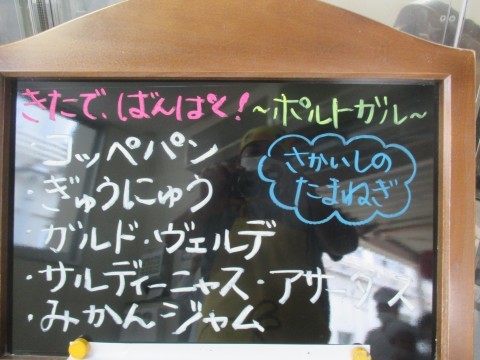 きたで、ばんぱく！～ポルトガル～
・コッペパン
・ぎゅうにゅう
・ガルド・ヴェルデ
・サルディーニャス・アサーダス
・みかんジャム
さかいしの
たまねぎ